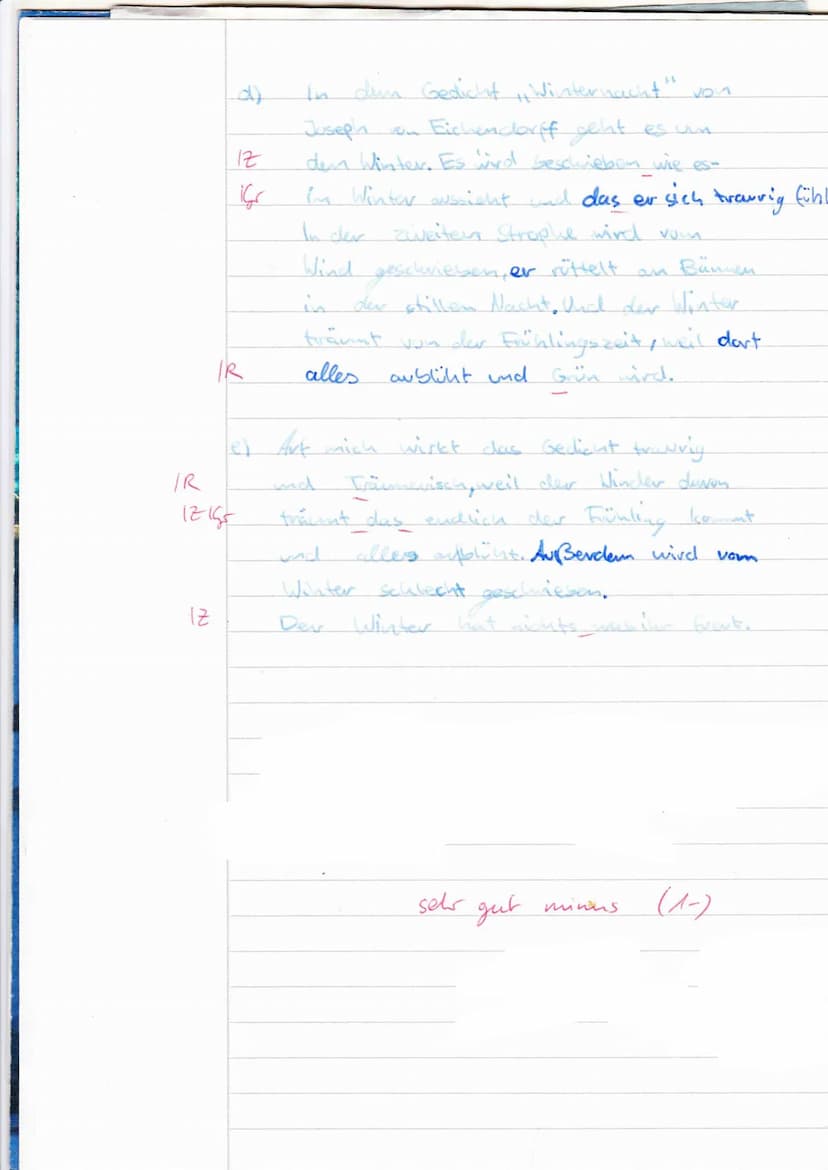 d) In dem Gedicht „Winternacht" von
Joseph von Eichendorff geht es um
IZ dem Winter. Es wird beschrieben wie es
IGr im Winter aussieht und das er sich traurig fühl
In der zweiten Strophe wird vom
Wind geschrieben, er rüttelt an Bäumen
in der stillen Nacht. Und der Winter
träumt von der Frühlingszeit, weil dort
IR alles aublüht und Grün wird.
e) Auf mich wirkt das Gedicht traurig
IR und Träumerisch, weil der Winder davon
IZ IGr träumt das endlich der Frühling kommt
und alles aufblüht. Außerdem wird vom
Winter schlecht geschrieben.
IZ Der Winter hat nichts was ihn freut.
sehr gut minus (1-)